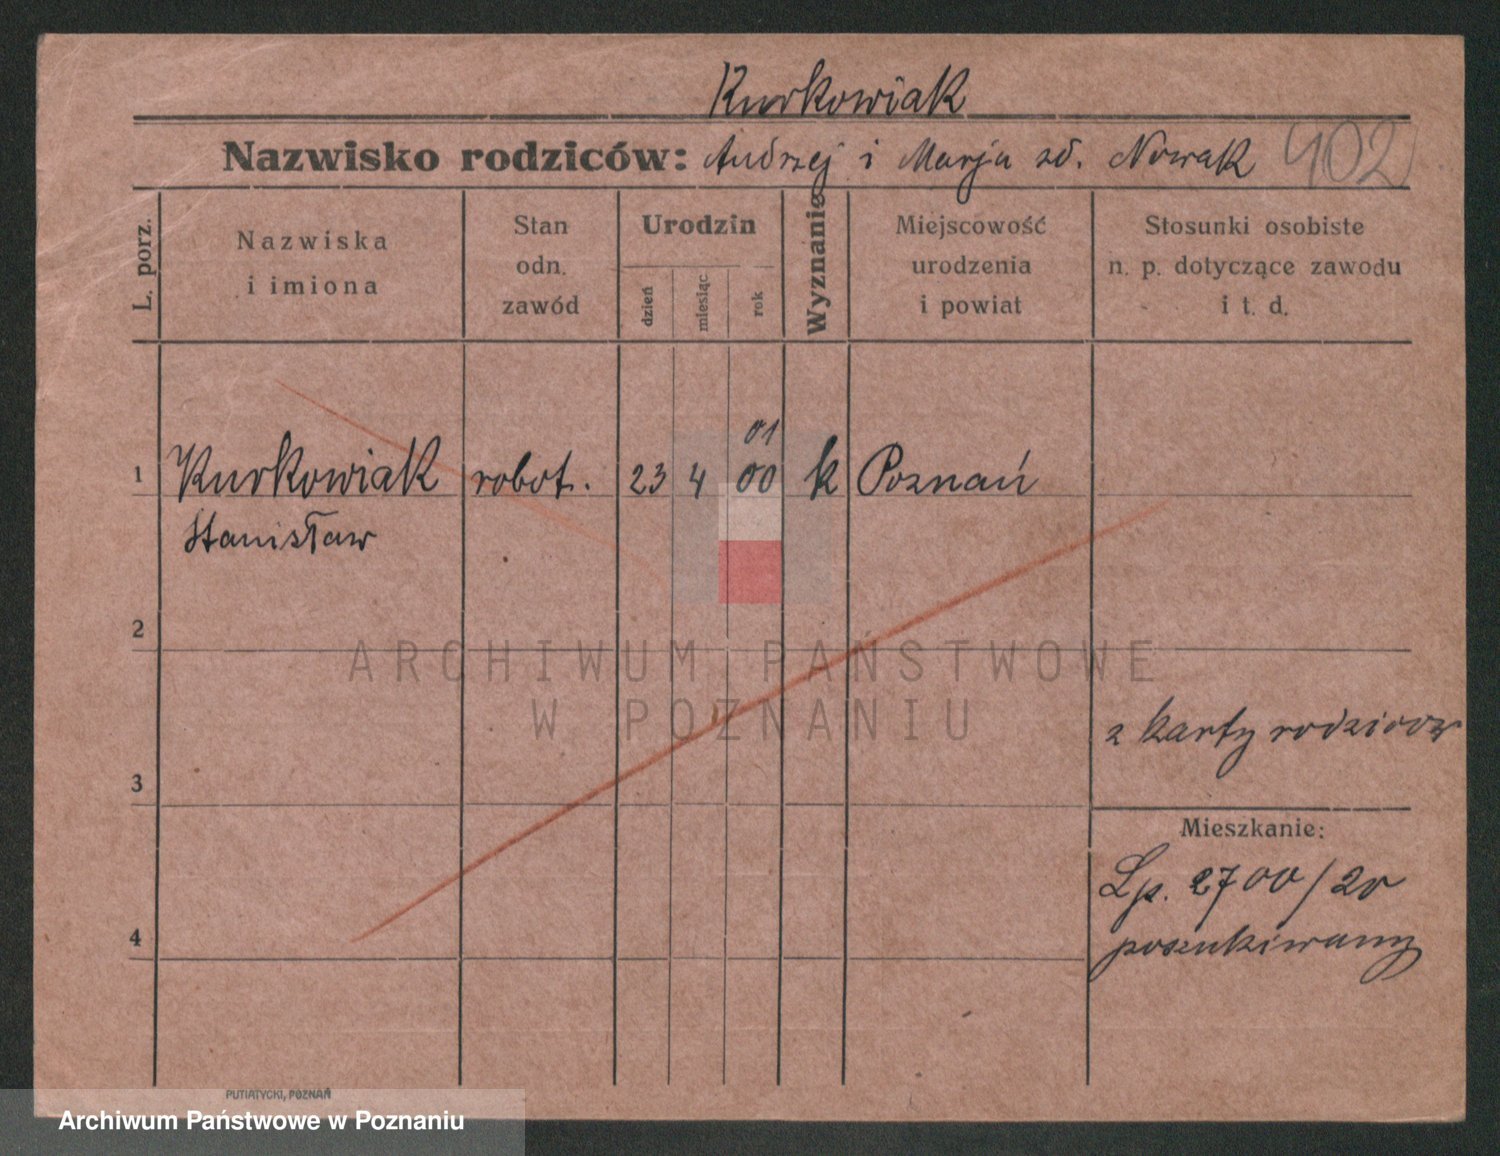 Kurkowiak
Nazwisko rodziców: Andrzej i Marja zd. Nowak 402
L. porz.
Nazwiska
i imiona
Stan
odn.
zawód
Urodzin
dzień
miesiąc
rok
Wyznanie
Miejscowość
urodzenia
i powiat
Stosunki osobiste
n. p. dotyczące zawodu
i t. d.
01
1 Kurkowiak robot. 23 4 00 k Poznań
Stanisław
2
ARCHIWUM PAŃSTWOWE
W POZNANIU
z karty rodziców
3
Mieszkanie:
Lp. 2700/20
4 poszukiwany
PUTIATYCKI, POZNAŃ
Archiwum Państwowe w Poznaniu